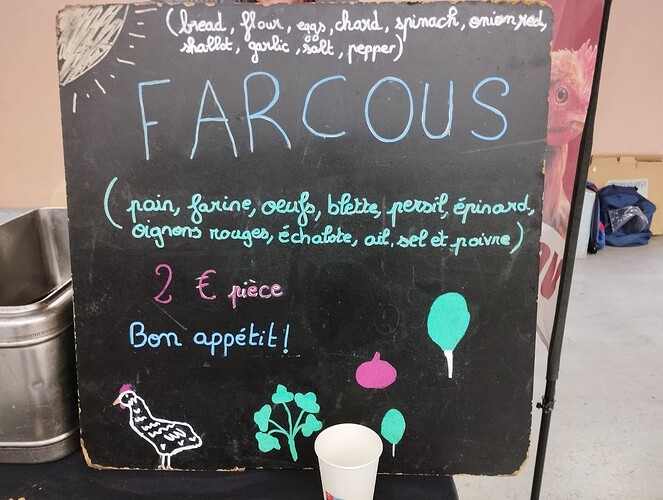 (bread, flour, eggs, chard, spinach, onion, red,
shallot, garlic, salt, pepper)
FARCOUS
(pain, farine, oeufs, blette, persil, épinard,
oignons rouges, échalote, ail, sel et poivre)
2 € pièce
Bon appétit!